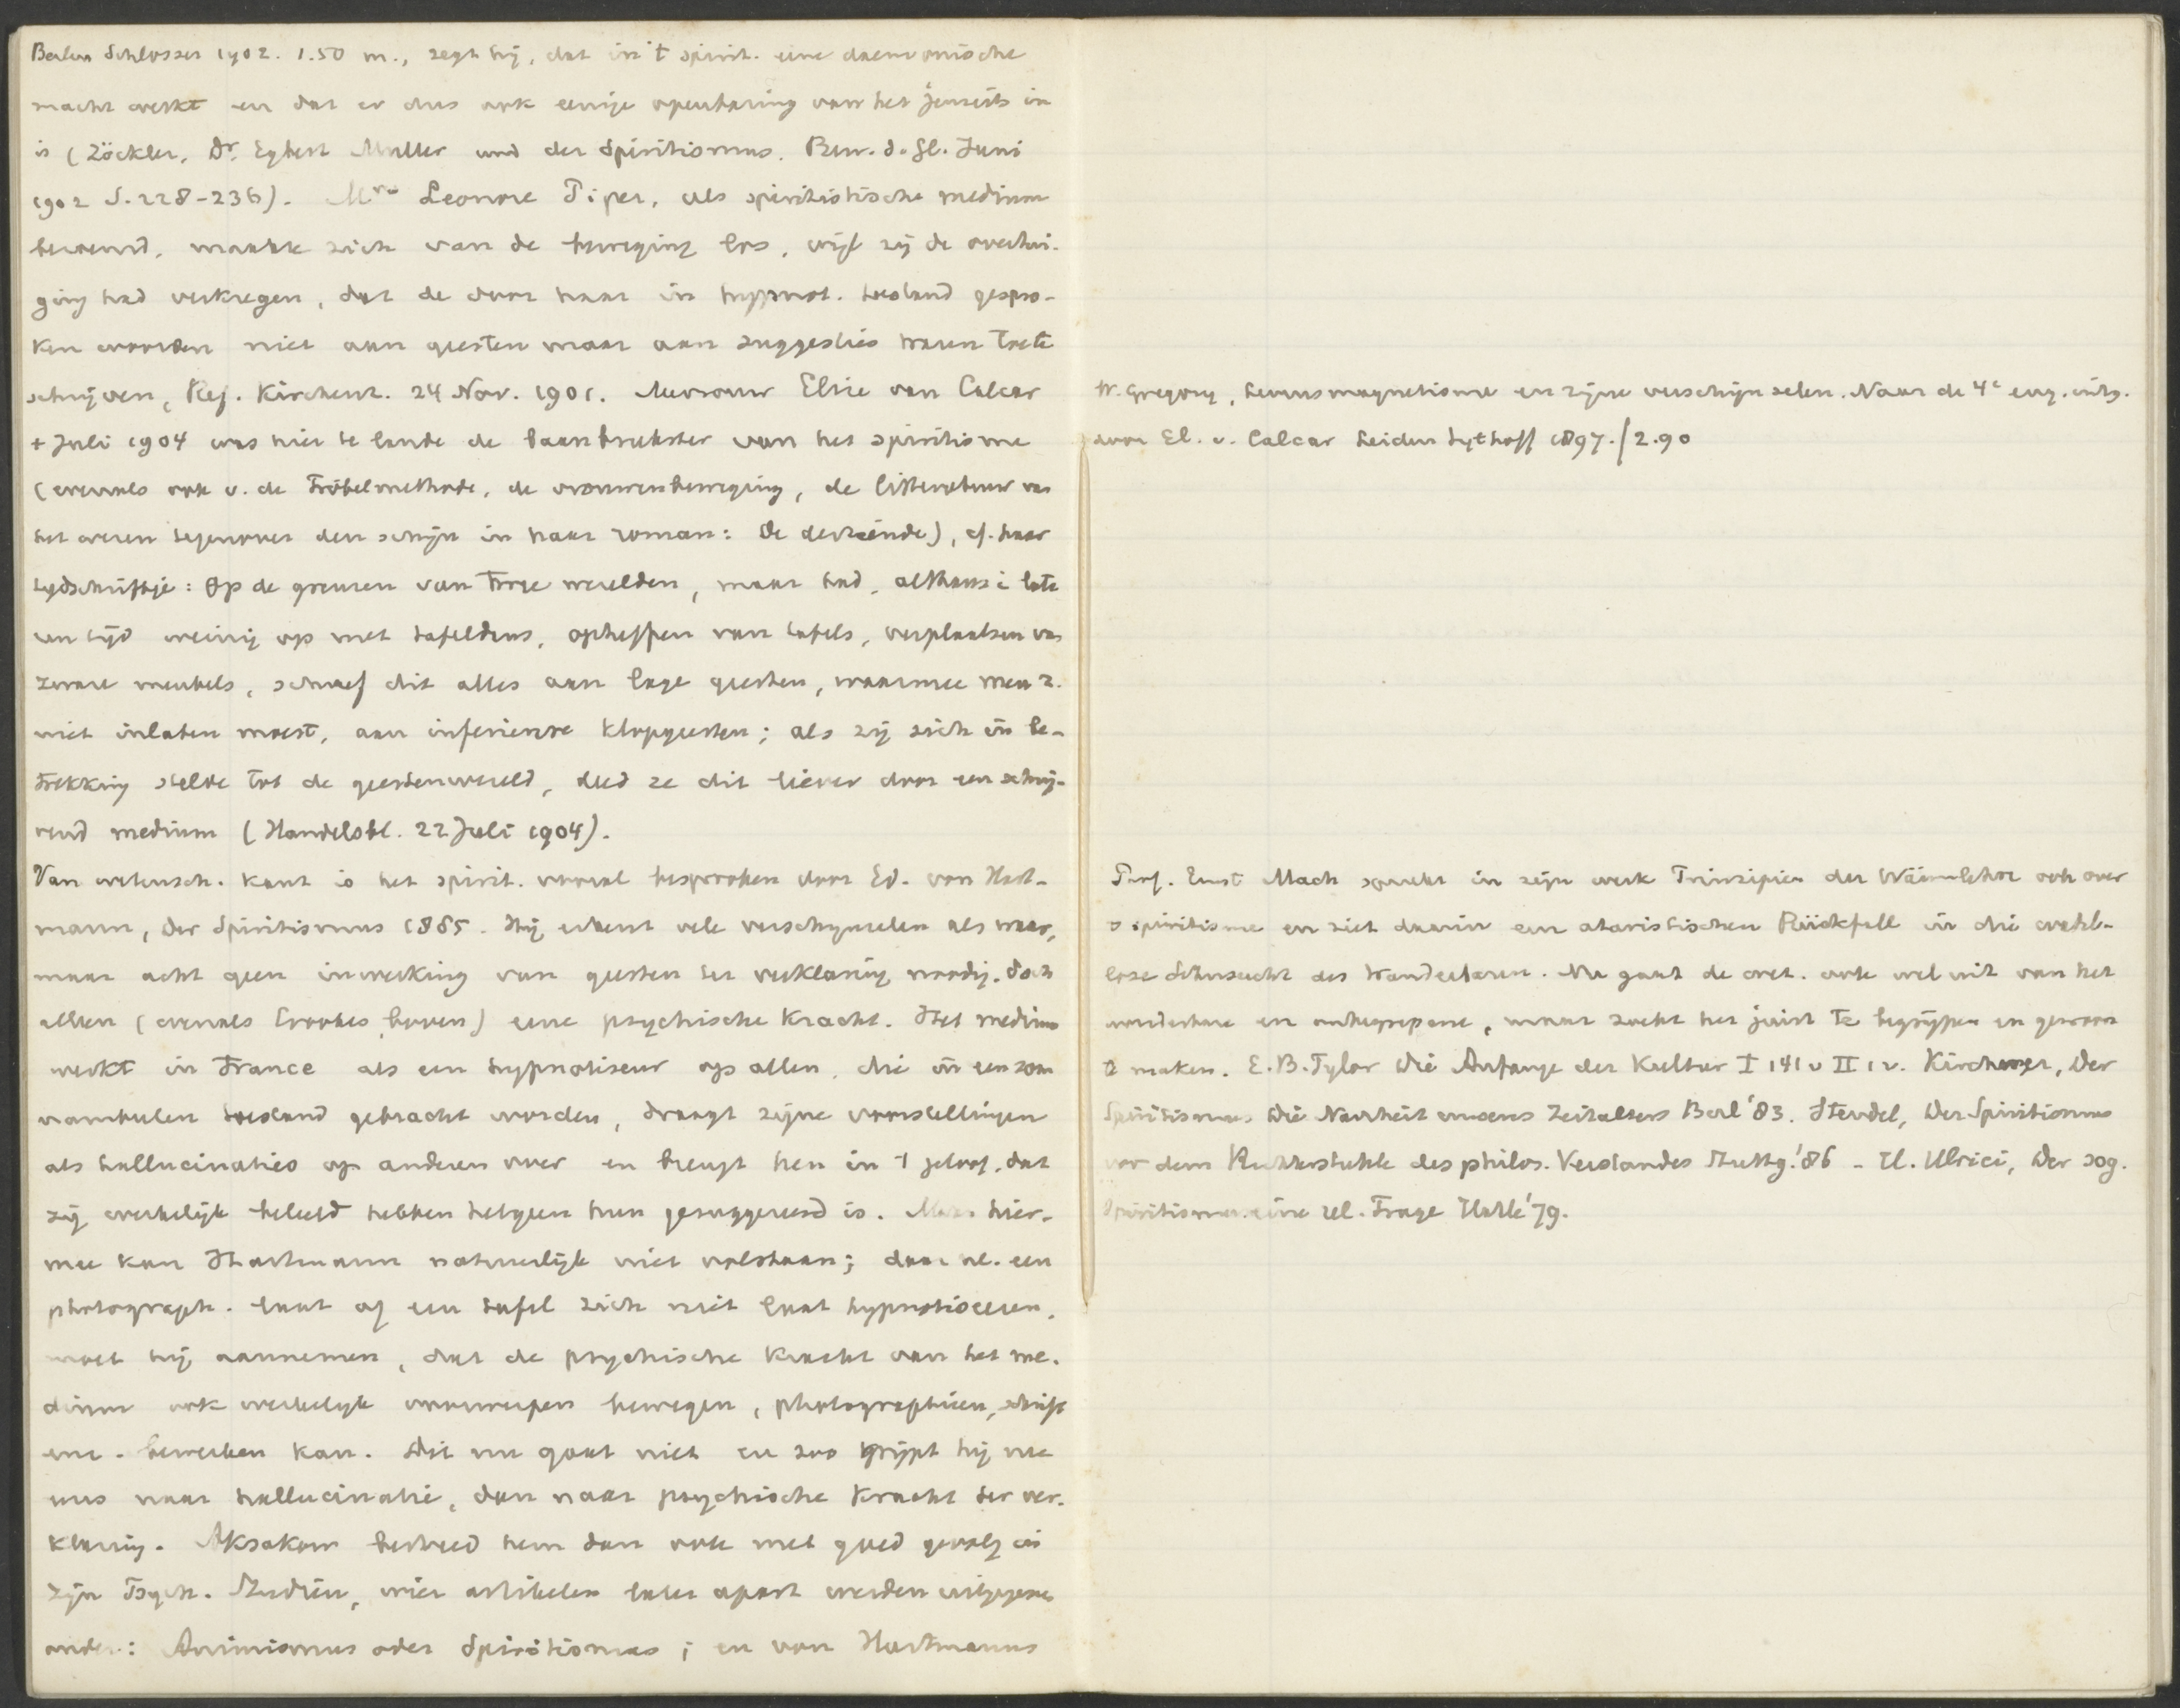 Berlin Schlosser 1902. 1.50 m., zegt hij, dat in 't spirit. eene daemonische
macht werkt en dat er dus ook eenige openbaring van het jenseits in
is (Zöckler, Dr. Egbert Muller und der Spiritismus. Bew. d. Gl. Juni
1902 S. 228-236). Mrs Leonore Piper, als spiritistische medium
bekend, maakte zich van de beweging los, wijl zij de overtui-
ging had verkregen, dat de door haar in hypnot. toestand gespro-
ken woorden niet aan geesten maar aan suggesties waren toe te
schrijven, Ref. Kirchenz. 24 Nov. 1901. Mevrouw Elise van Calcar
+ Juli 1904 was hier te lande de baanbreekster van het spiritisme
(evenals ook v. de Fröbelmethode, de vrouwenbeweging, de litteratuur van
het wezen tegenover den schijn in haar roman: De dertiende), cf. haar
tijdschriftje: Op de grenzen van twee werelden, maar had, althans i later
en tijd weinig op met tafeldans, opheffen van tafels, verplaatsen van
zware meubels, schreef dit alles aan lage geesten, waarmee men z.
niet inlaten moest, aan inferieure klopgeesten; als zij zich in be-
trekking stelde tot de geestenwereld, deed ze dit liever door een schrij-
vend medium (Handelsbl. 22 Juli 1904).
Van wetensch. kant is het spirit. vooral besproken door Ed. von Hart-
mann, Der Spiritismus 1885. Hij erkent vele verschijnselen als waar,
maar acht geen inwerking van geesten ter verklaring noodig. Doch
alleen (evenals Crookes boven) eene psychische kracht. Het medium
werkt in trance als een hypnotiseur op allen, die in een som
nambulen toestand gebracht worden, draagt zijne voorstellingen
als hallucinaties op anderen over en brengt hen in 't geloof, dat
zij werkelijk beleefd hebben hetgeen hun gesuggereerd is. Maar hier-
mee kan Hartmann natuurlijk niet volstaan; daar nl. een
photograph. plaat of een tafel zich niet laat hypnotiseeren,
moet hij aannemen, dat de psychische kracht van het me-
dium ook werkelijk voorwerpen bewegen, photographieen, schrift
enz. bewerken kan. Dit nu gaat niet en zoo grijpt hij nu
eens naar hallucinatie, dan naar psychische kracht ter ver-
klaring. Aksakow bestreed hem dan ook met goed gevolg in
zijn Psych. Studien, wier artikelen later apart werden uitgegeven
onder: Animismus oder Spiritismus; en von Hartmanns
W. Gregory, Levensmagnetisme en zijne verschijnselen. Naar de 4e eng. uitg.
door El. v. Calcar Leiden Sythoff 1897. f 2.90
Prof. Ernst Mach spreekt in zijn werk Prinzipien der Wärmelehre ook over
spiritisme en ziet daarin een atavistischen Rückfall in die wahl-
lose Sehnsucht des Wunderbaren. Nu gaat de wet. ook wel uit van het
wonderbare en onbegrepene, maar zoekt het juist te begrijpen en gewoon
te maken. E.B. Tylor Die Anfänge der Kultur I 141 v II 1 v. Kirchner, Der
Spiritismus Die Narrheit unseres Zeitalters Berl '83. Steudel, Der Spiritismus
vor dem Richterstuhle des philos. Verstandes Stuttg. '86 - H. Ulrici, Der sog.
Spiritismus eine wl. Frage Halle '79.